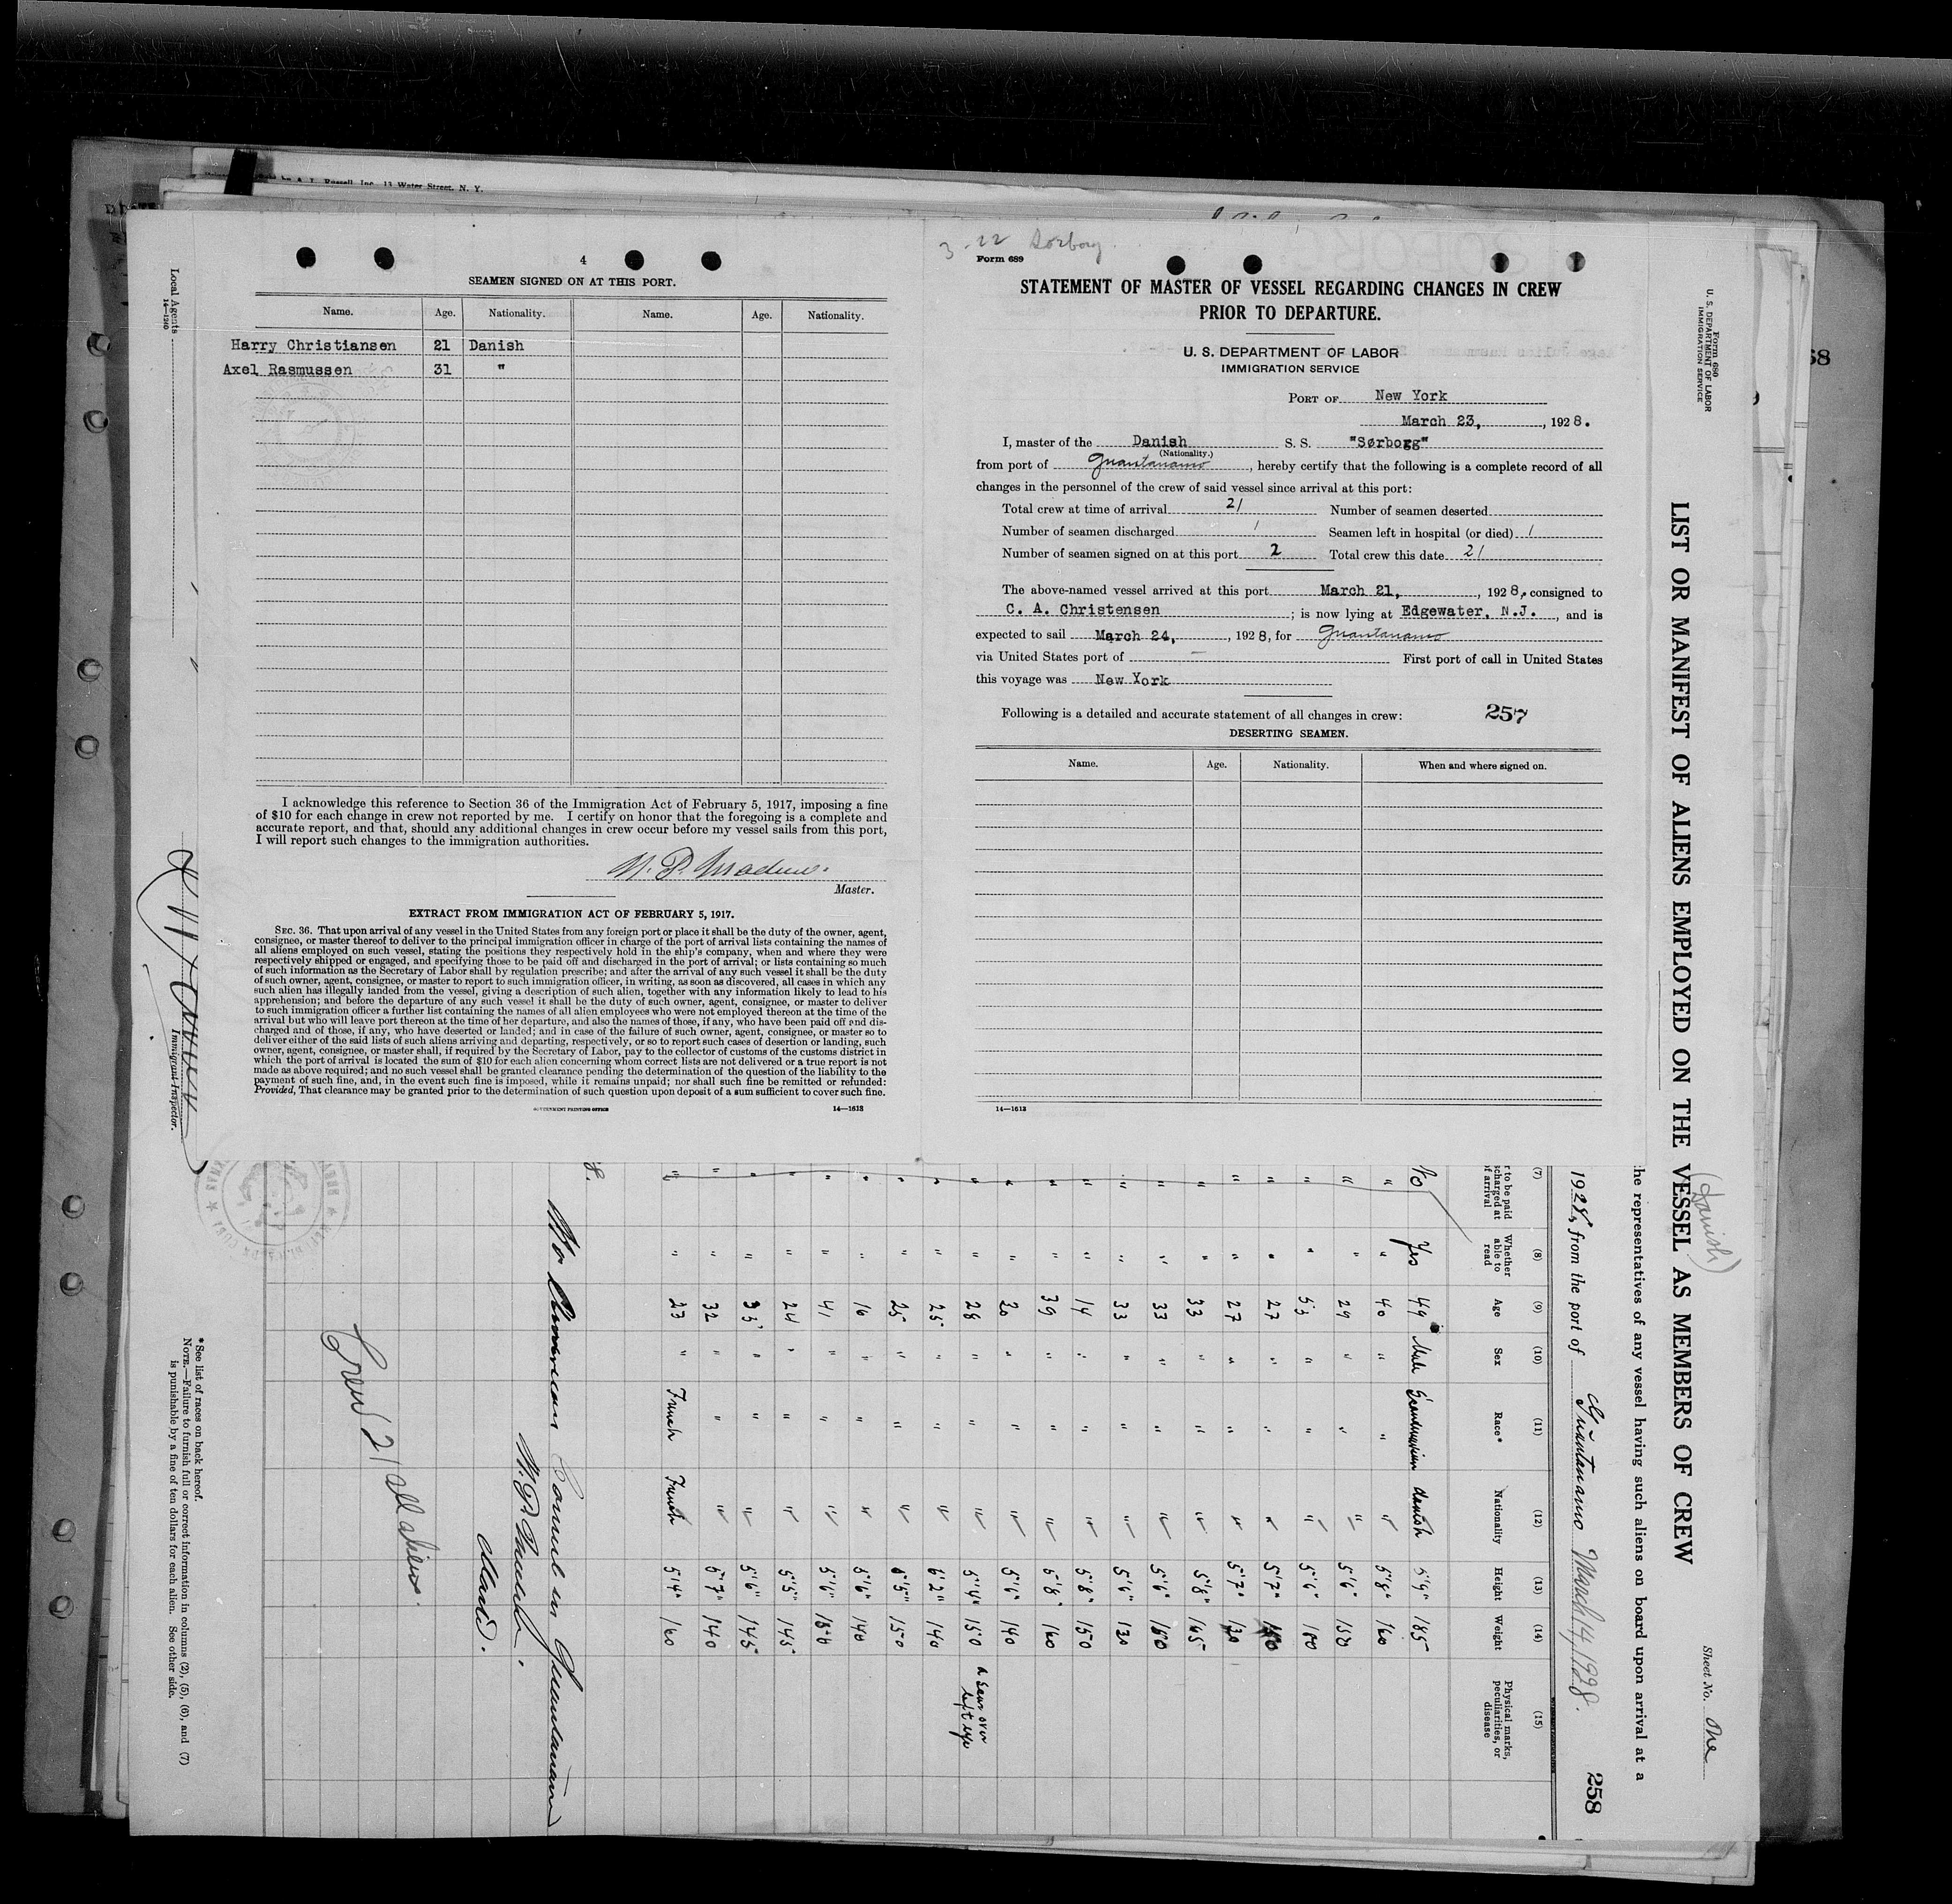 A. L. Russell, Inc., 13 Water Street, N. Y.
4
SEAMEN SIGNED ON AT THIS PORT.
Name. Age. Nationality. Name. Age. Nationality.
Harry Christiansen 21 Danish
Axel Rasmussen 31 "
I acknowledge this reference to Section 36 of the Immigration Act of February 5, 1917, imposing a fine
of $10 for each change in crew not reported by me. I certify on honor that the foregoing is a complete and
accurate report, and that, should any additional changes in crew occur before my vessel sails from this port,
I will report such changes to the immigration authorities.
Master.
EXTRACT FROM IMMIGRATION ACT OF FEBRUARY 5, 1917.
SEC. 36. That upon arrival of any vessel in the United States from any foreign port or place it shall be the duty of the owner, agent,
consignee, or master thereof to deliver to the principal immigration officer in charge of the port of arrival lists containing the names of
all aliens employed on such vessel, stating the positions they respectively hold in the ship's company, when and where they were
respectively shipped or engaged, and specifying those to be paid off and discharged in the port of arrival; or lists containing so much
of such information as the Secretary of Labor shall by regulation prescribe; and after the arrival of any such vessel it shall be the duty
of such owner, agent, consignee, or master to report to such immigration officer, in writing, as soon as discovered, all cases in which any
such alien has illegally landed from the vessel, giving a description of such alien, together with any information likely to lead to his
apprehension; and before the departure of any such vessel it shall be the duty of such owner, agent, consignee, or master to deliver
to such immigration officer a further list containing the names of all alien employees who were not employed thereon at the time of the
arrival but who will leave port thereon at the time of her departure, and also the names of those, if any, who have been paid off and dis-
charged and of those, if any, who have deserted or landed; and in case of the failure of such owner, agent, consignee, or master so to
deliver either of the said lists of such aliens arriving and departing, respectively, or so to report such cases of desertion or landing, such
owner, agent, consignee, or master shall, if required by the Secretary of Labor, pay to the collector of customs of the customs district in
which the port of arrival is located the sum of $10 for each alien concerning whom correct lists are not delivered or a true report is not
made as above required; and no such vessel shall be granted clearance pending the determination of the question of the liability to the
payment of such fine, and, in the event such fine is imposed, while it remains unpaid; nor shall such fine be remitted or refunded:
Provided, That clearance may be granted prior to the determination of such question upon deposit of a sum sufficient to cover such fine.
GOVERNMENT PRINTING OFFICE 14—1613
3-22 Sorborg
Form 689
STATEMENT OF MASTER OF VESSEL REGARDING CHANGES IN CREW
PRIOR TO DEPARTURE.
U. S. DEPARTMENT OF LABOR
IMMIGRATION SERVICE
PORT OF New York
March 23, , 1928.
I, master of the Danish S. S. "Sørborg"
(Nationality.)
from port of Guantanamo , hereby certify that the following is a complete record of all
changes in the personnel of the crew of said vessel since arrival at this port:
Total crew at time of arrival 21 Number of seamen deserted
Number of seamen discharged 1 Seamen left in hospital (or died) 1
Number of seamen signed on at this port 2 Total crew this date 21
The above-named vessel arrived at this port March 21, , 1928, consigned to
C. A. Christensen ; is now lying at Edgewater, N.J. , and is
expected to sail March 24, , 1928, for Guantanamo
via United States port of — First port of call in United States
this voyage was New York
Following is a detailed and accurate statement of all changes in crew: 257
DESERTING SEAMEN.
Name. Age. Nationality. When and where signed on.
14—1613
Form 680
U. S. DEPARTMENT OF LABOR
IMMIGRATION SERVICE
Sheet No. One
(Danish)
LIST OR MANIFEST OF ALIENS EMPLOYED ON THE VESSEL AS MEMBERS OF CREW
the representatives of any vessel having such aliens on board upon arrival at a
1928, from the port of Guantanamo March 14, 1928. 258
(7) (8) (9) (10) (11) (12) (13) (14) (15)
r to be paid
scharged at
of arrival
Whether
able to
read
Age Sex Race* Nationality Height Weight
Physical marks,
peculiarities, or
disease
No Yes 49 Male Scandinavian danish 5'9" 185
" " 40 " " " 5'8" 160
" " 29 " " " 5'6" 150
" " 53 " " " 5'6" 180
" " 27 " " " 5'7"
" " 27 " " " 5'7" 130
" " 33 " " " 5'8" 165
" " 33 " " " 5'6" 180
" " 33 " " " 5'6" 130
" " 14 " " " 5'8" 150
" " 39 " " " 5'8" 160
" " 20 " " " 5'6" 140
" " 28 " " " 5'4" 150 a scar over left eye
" " 25 " " " 6'2" 140
" " 25 " " " 5'5" 150
" " 16 " " " 5'6" 140
" " 41 " " " 5'6"
" " 24 " " " 5'5" 145
" " 33 " " " 5'6" 145
" " 32 " " " 5'7" 140
" " 23 " French French 5'4" 160
No American Consul in Guantanamo
Crew 21 all aliens.
*See list of races on back hereof.
NOTE.—Failure to furnish full or correct information in columns (2), (5), (6), and (7)
is punishable by a fine of ten dollars for each alien. See other side.
Local Agents
14—1240
Immigrant Inspector.
68